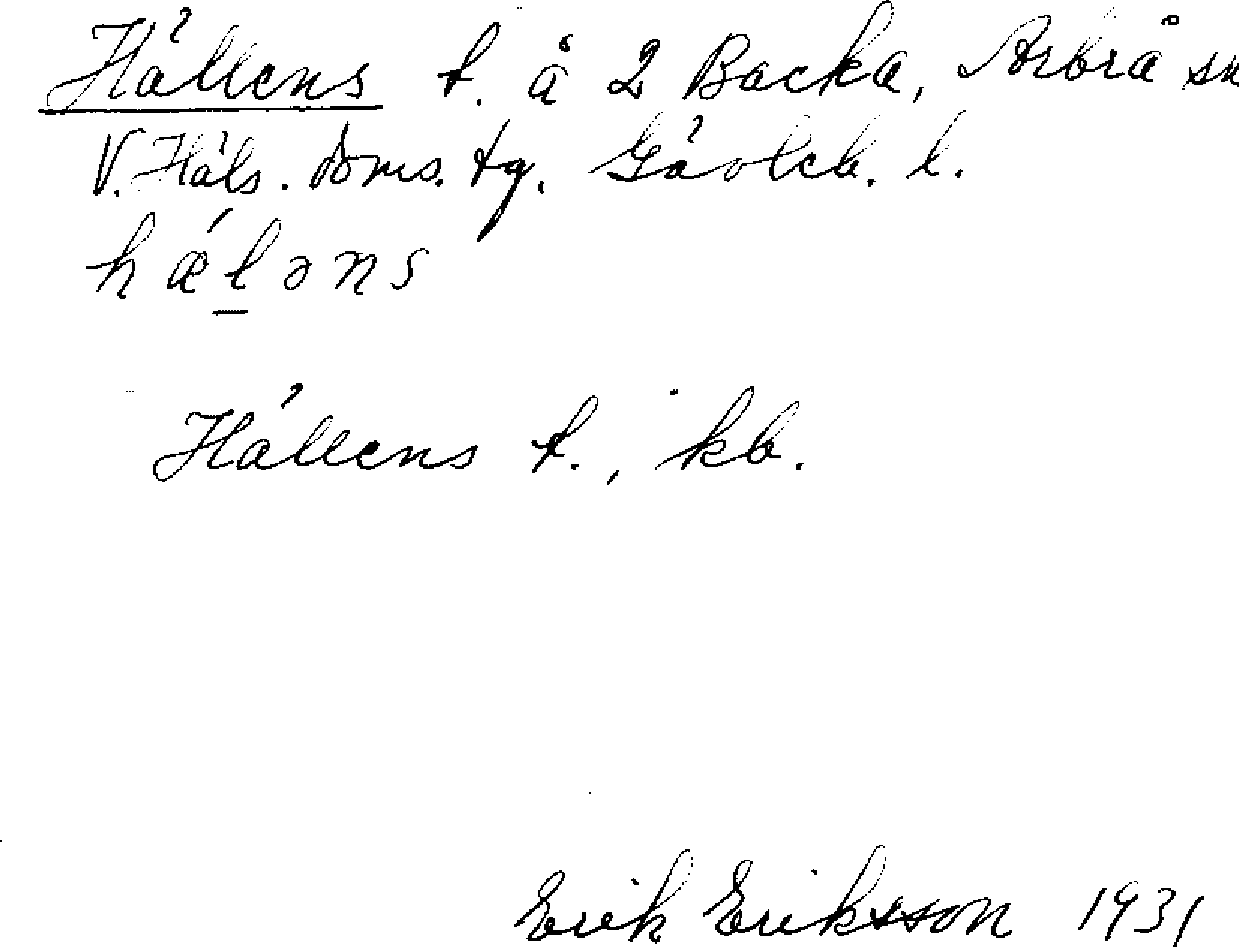 Hällens t. å 2 Backa, Arbrå sn
V. Häls. doms. tg. Gävleb. l.
hǽl̠əns
Hällens t., kb.
Erik Eriksson 1931